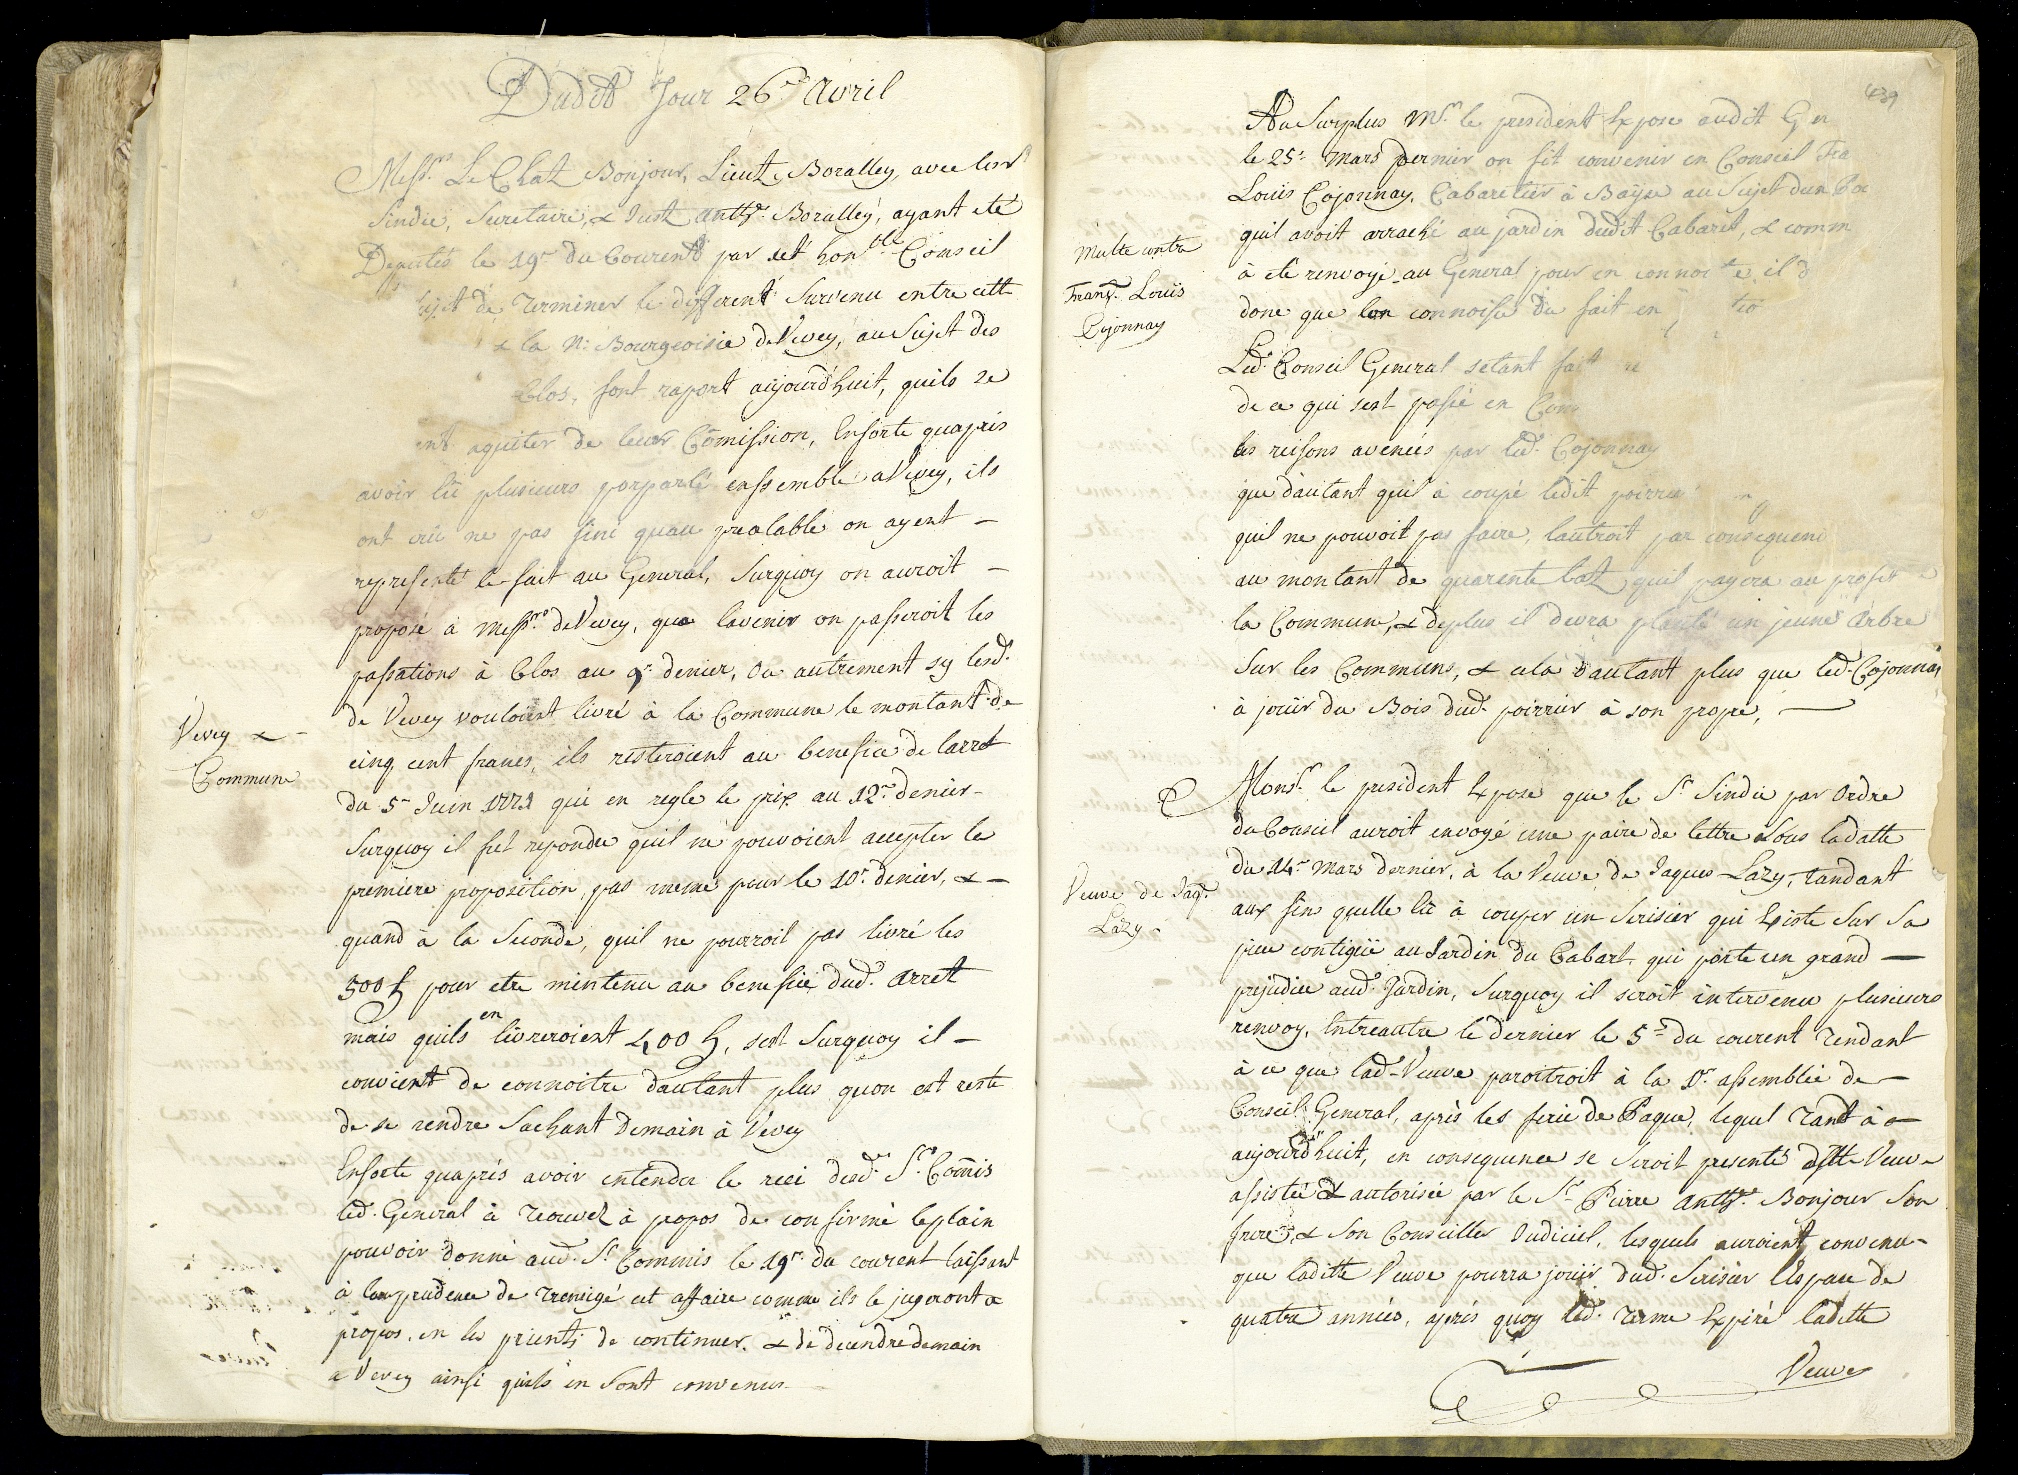 Dudit Jour 26e Avril
Messrs. Le Chat. Bonjour, Lieut. Boralley, avec les
Sindic, Secretaire, & Just. Anthe. Boralley, ayant eté
Deputés le 19e du Courent par cet honble Conseil
de Terminer le different Survenu entre cette
& la Ne. Bourgeoisie de Vevey, au Sujet des
Clos, font raport aujourdhuit, quils se
aquiter de leur Comission, Ensorte quapres
avoir lü plusieurs porparlé enssemble a Vevey, ils
ont crü ne pas fini quau prealable on ayent –
representé le fait au General, Surquoy on auroit –
proposé à Messrs. de Vevey, que lavenir on passeroit les
passations à Clos au 9e denier, Ou autrement sy lesd.
de Vevey vouloient livré à la Commune le montant de
cinq cent francs, ils resteroient au benefice de larret
du 5e Juin 1771 qui en regle le prix au 12e denier –
Surquoy il fut repondu quil ne pouvoient accepter la
premiere proposition, pas meme pour le 10e. denier, & –
quand à la Seconde, quil ne pourroit pas livré les
500 f pour etre mintenu au benefice dud. Arret
mais quils en livreroient 400 f, sest Surquoy il –
convient de connoitre dautant plus quon est resté
de se rendre Sachant Demain à Vevey
Ensorte quaprès avoir entendu le reci desd. Srs. Commis
led. General à trouvez à propos de confirmé le plain
pouvoir donné aud. Sr. Commis le 19e du courent laissant
à leur prudence de trensigé cet affaire comme ils le jugeront a
propos, en les prients de continuer, & de decendre demain
a Vevey ainsi quils en Sont convenus –
Vevey & –
Commune
439
Au Surplus Mr. le president Expose audit Gen
le 25e Mars dernier on fit convenir en Conseil Fra
Louis Cojonnay, Cabaretier à Bayse au Sujet dun
quil avoit arraché au jardin dudit Cabaret, & comm
à eté renvoyé au General pour en connoitre, il d
donc que lon connoisse du fait en
Led. Conseil General setant fait
de ce qui sest passé en Con
les reisons avencés par led. Cojonnay
que dautant quil à coupé ledit poirrier
quil ne pouvoit pas faire, lautroit par consequend
au montant de quarente batz quil payera au profit
la Commune, & deplus il devra planté un jeune Arbre
Sur les Communs, & cela dautant plus que led. Cojonnay
à jouïr du Bois dud. poirrier à son propre, –
Multe contre
Franç. Louïs
Cojonnay
Monsr. le president Expose que le Sr. Sindic par Ordre
du Conseil auroit envoyé une paire de lettre Sous la datte
du 14e Mars dernier, à la Veuve de Jaques Lazy, tandant
aux fin quelle lü à couper un Serisier qui Existe Sur Sa
piece contigüe au Jardin du Cabaret qui porte un grand –
prejudice aud. Jardin, Surquoy il seroit intervenu plusieurs
renvoy, Entreautre le dernier le 5e du courent tendant
à ce que lad. Veuve paroitroit à la 1e. assemblée de –
Conseil General, après les ferie de Paque, lequel tand à –
aujourdhuit, en consequence se Seroit presenté ditte Veuve
assistée & autorisée par le Sr. Pierre Anthe. Bonjour Son
frere, & Son Conseiller Judiciel, lesquels auroient convenu –
que laditte Veuve pourra jouïr dud. Serisier l'Espace de
quatre années, après quoy led. terme Expiré laditte
Veuve
Veuve de Jaqs.
Lazy.